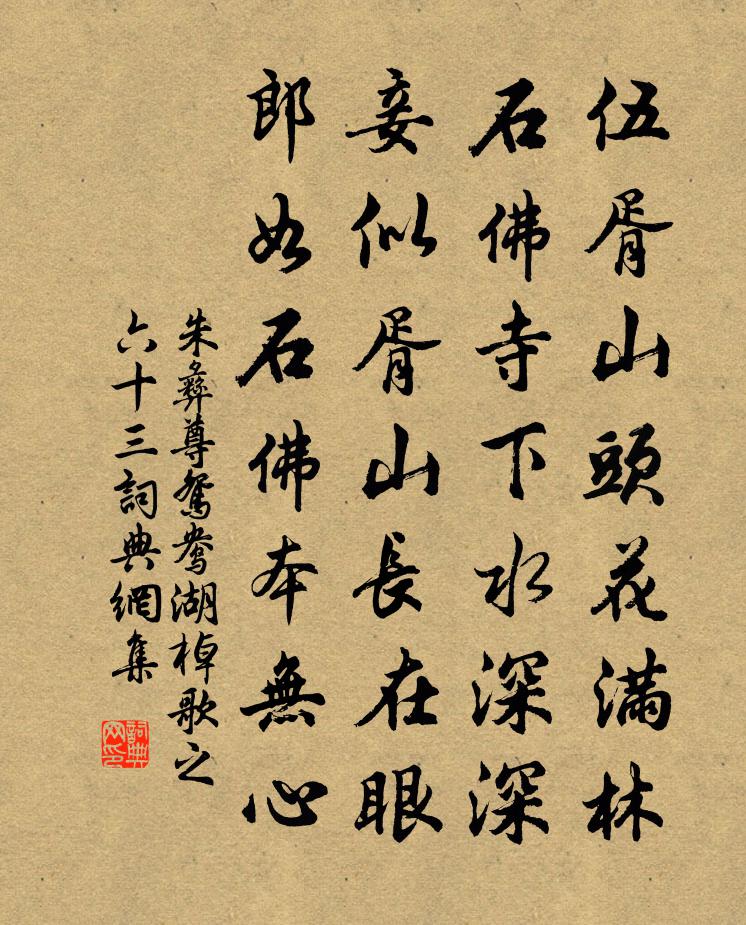 伍胥山頭花滿林
石佛寺下水深深
妾似胥山長在眼
郎如石佛本無心
朱彝尊鴛鴦湖棹歌之
六十三詞典網集
詞典网印